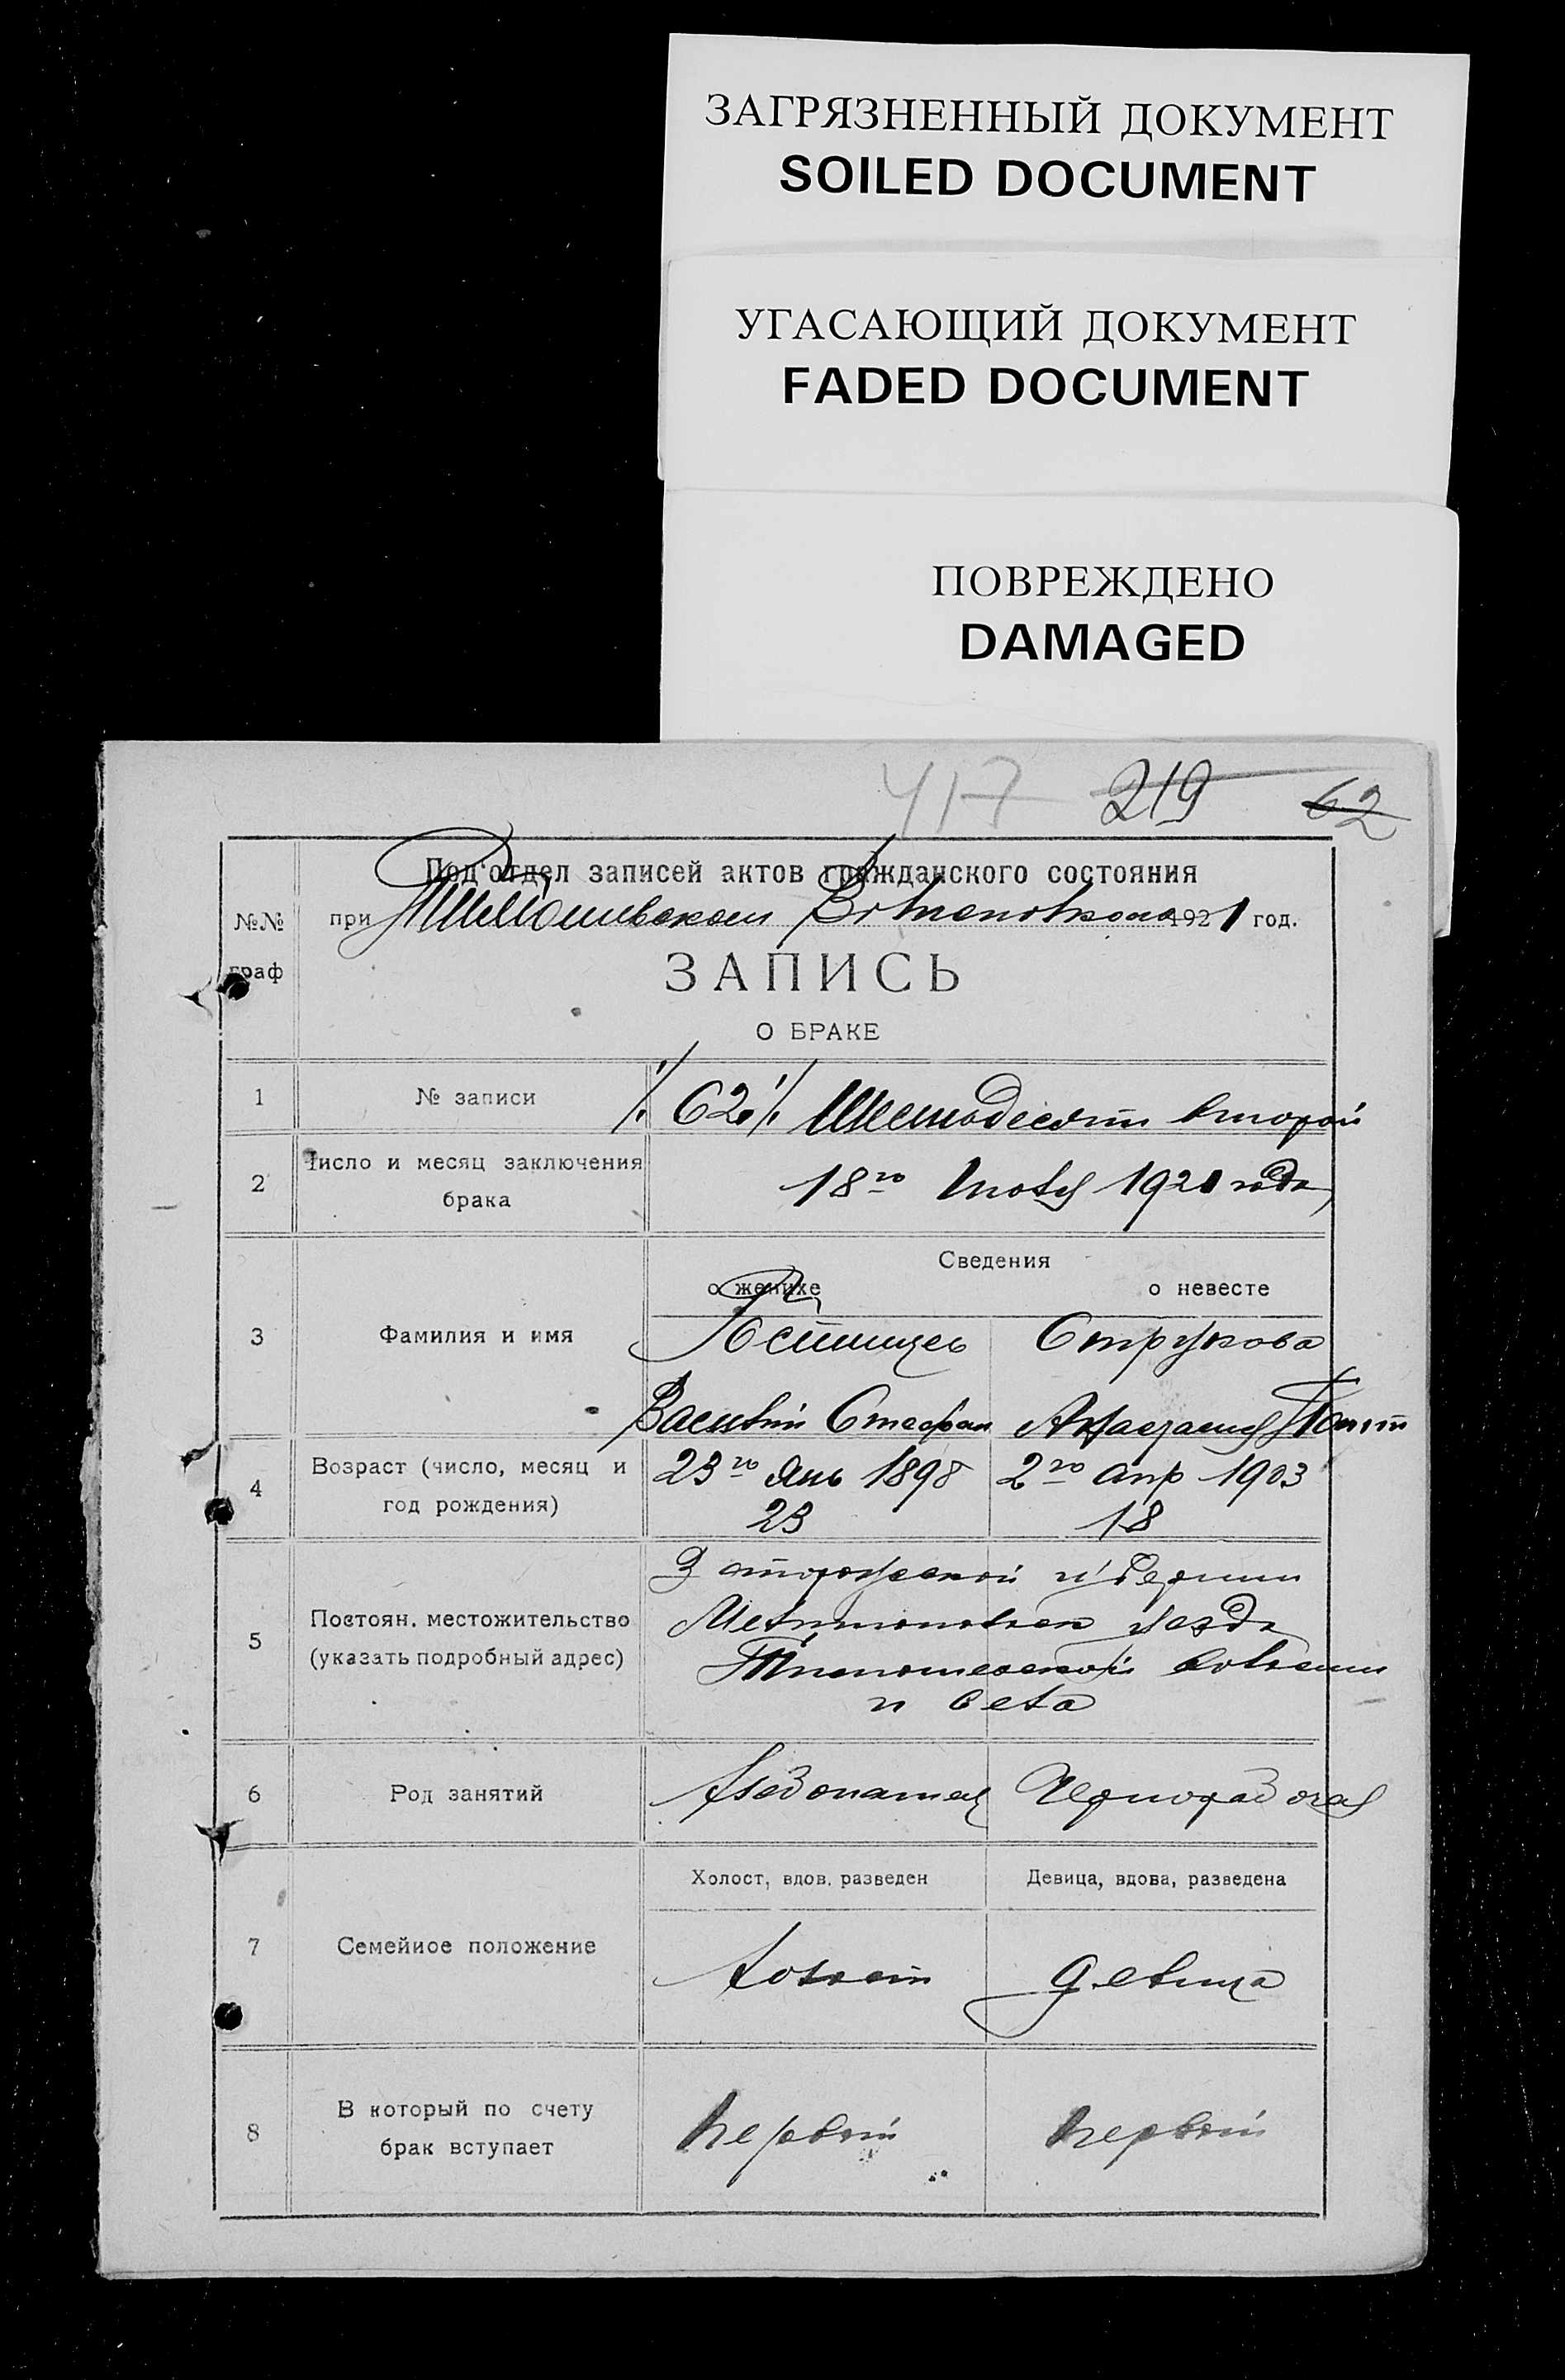 ЗАГРЯЗНЕННЫЙ ДОКУМЕНТ
SOILED DOCUMENT
УГАСАЮЩИЙ ДОКУМЕНТ
FADED DOCUMENT
ПОВРЕЖДЕНО
DAMAGED
417 219 62
Под'отдел записей актов гражданского состояния
№№ граф
при 1921 год.
ЗАПИСЬ
О БРАКЕ
1 № записи 62 Шестодесят второй
2 Число и месяц заключения брака
18го Июля 1921 года
Сведения
о женихе о невесте
3 Фамилия и имя
Струкова
Василий Стефан
4 Возраст (число, месяц и год рождения)
23го Янв 1898 2го апр 1903
23 18
5 Постоян. местожительство (указать подробный адрес)
губернии
уезда
волости
и села
6 Род занятий
Хлебопашец Чернорабочая
Холост, вдов. разведен Девица, вдова, разведена
7 Семейное положение
холост девица
8 В который по счету брак вступает
первый первый